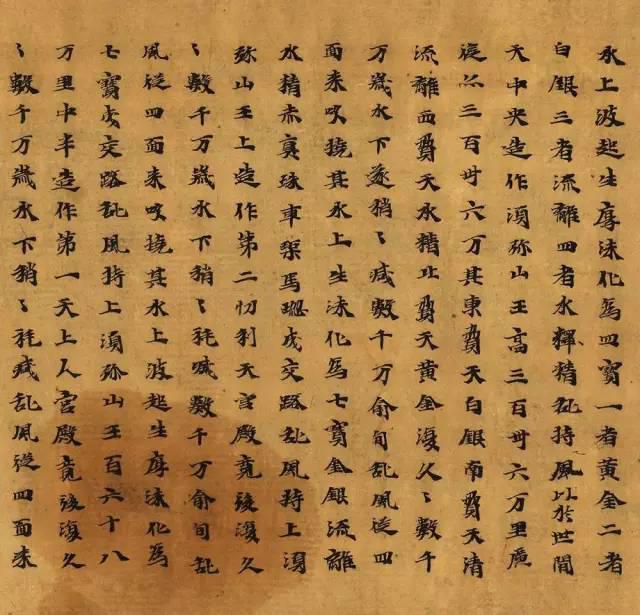 水上波起生厚沫化為四寳一者黃金二者
白銀三者流離四者水釋精亂持風以於世間
天中央造作湏弥山王高三百卅六万里廣
三百卅六万其東費天白銀南費天清
流離西費天水精北費天黃金復久〻數千
万歲水下遂稍〻減數千万俞旬亂風從四
面来吹撓其水上生沫化為七寳金銀流離
水精赤真珠車渠馬瑙成交路亂風持上湏
弥山王上造作第二忉利天宮殿竟後復久
〻數千万歲水下稍〻耗減數千万俞旬亂
風從四面来吹撓其水上波起生厚沫化為
七寳成交路亂風持上湏弥山王百六十八
万里中半造作第一天上人宮殿竟後復久
〻數千万歲水下稍〻耗減亂風從四面来